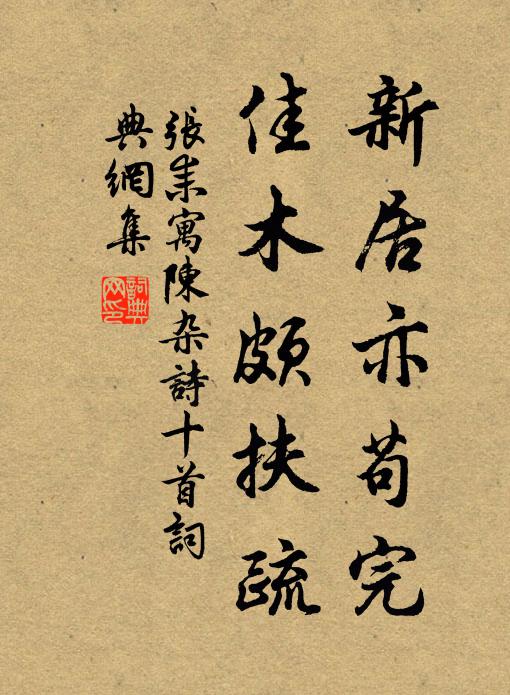 新居亦苟完
佳木頗扶疏
張耒寓陳杂詩十首詞
典網集
詞典
网印